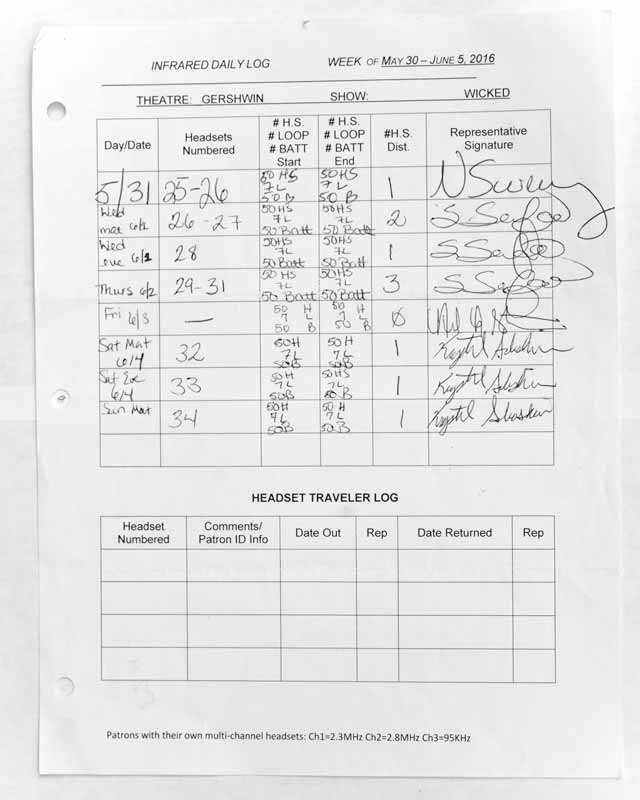 INFRARED DAILY LOG WEEK OF MAY 30 – JUNE 5, 2016
THEATRE: GERSHWIN SHOW: WICKED
Day/Date
Headsets
Numbered
# H.S.
# LOOP
# BATT
Start
# H.S.
# LOOP
# BATT
End
#H.S.
Dist.
Representative
Signature
5/31
25-26
50 HS
7L
50 B
50 HS
7L
50 B
1
N Sweeny
Wed
mat 6/1
26 - 27
50HS
7L
50 Batt
50HS
7L
50 Batt
2
Wed
eve 6/1
28
50HS
7L
50 Batt
50HS
7L
50 Batt
1
Thurs 6/2
29-31
50 HS
7L
50 Batt
50HS
7L
50 Batt
3
Fri 6/3
—
50 H
7 L
50 B
50 H
7 L
50 B
0
Sat Mat
6/4
32
50H
7L
50B
50 H
7 L
50 B
1
Krystal
Sat Eve
6/4
33
50H
7L
50B
50H
7L
50 B
1
Krystal
Sun Mat
34
50H
7L
50B
50 H
7L
50 B
1
Krystal
HEADSET TRAVELER LOG
Headset
Numbered
Comments/
Patron ID Info
Date Out
Rep
Date Returned
Rep
Patrons with their own multi-channel headsets: Ch1=2.3MHz Ch2=2.8MHz Ch3=95KHz